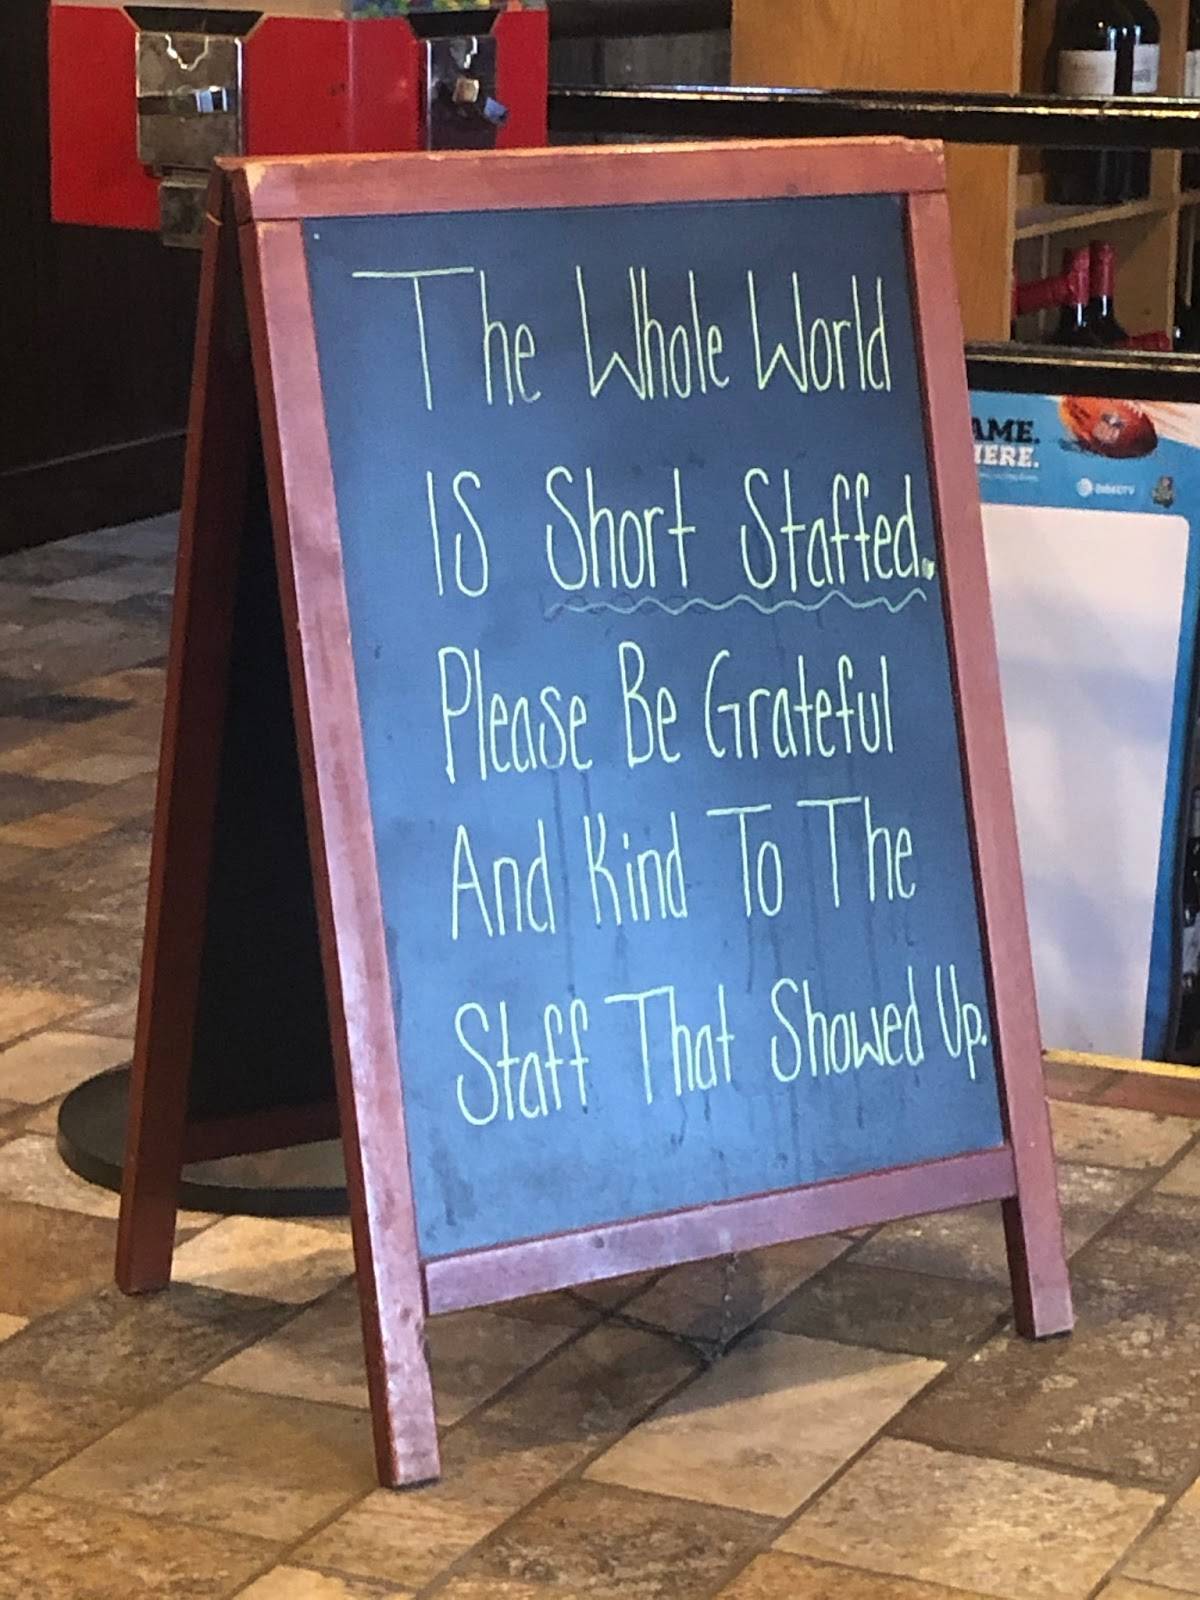 The Whole World
IS Short Staffed.
Please Be Grateful
And Kind To The
Staff That Showed Up.
AME.
HERE.
DIRECTV